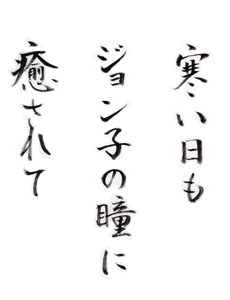 寒い日も
ジョン子の瞳に
癒されて